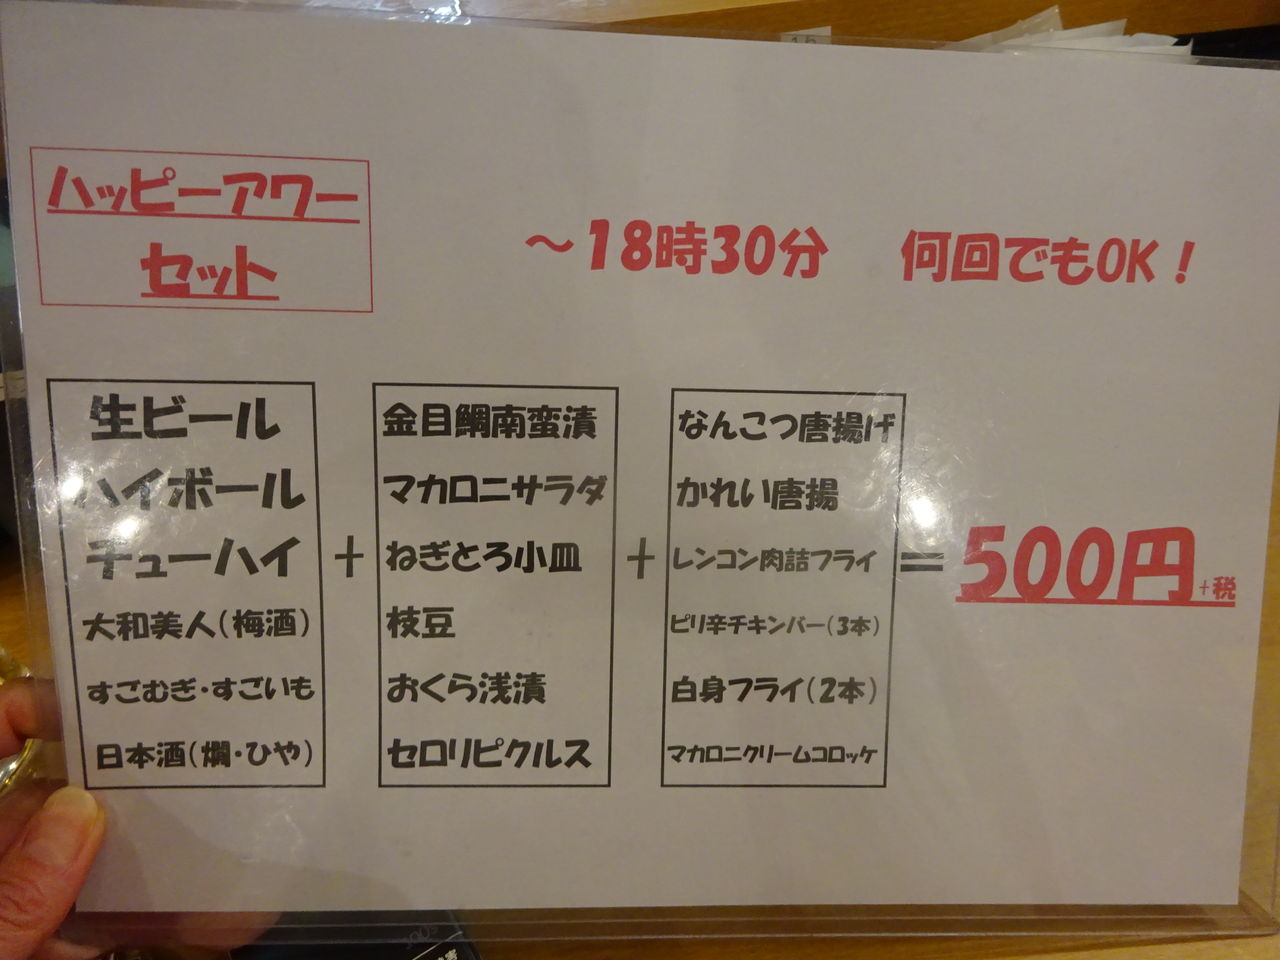 ハッピーアワー
セット
～18時30分 何回でもOK！
生ビール
ハイボール
チューハイ
大和美人(梅酒)
すごむぎ・すごいも
日本酒(燗・ひや)
+
金目鯛南蛮漬
マカロニサラダ
ねぎとろ小皿
枝豆
おくら浅漬
セロリピクルス
+
なんこつ唐揚げ
かれい唐揚
レンコン肉詰フライ
ピリ辛チキンバー(3本)
白身フライ(2本)
マカロニクリームコロッケ
=
500円+税